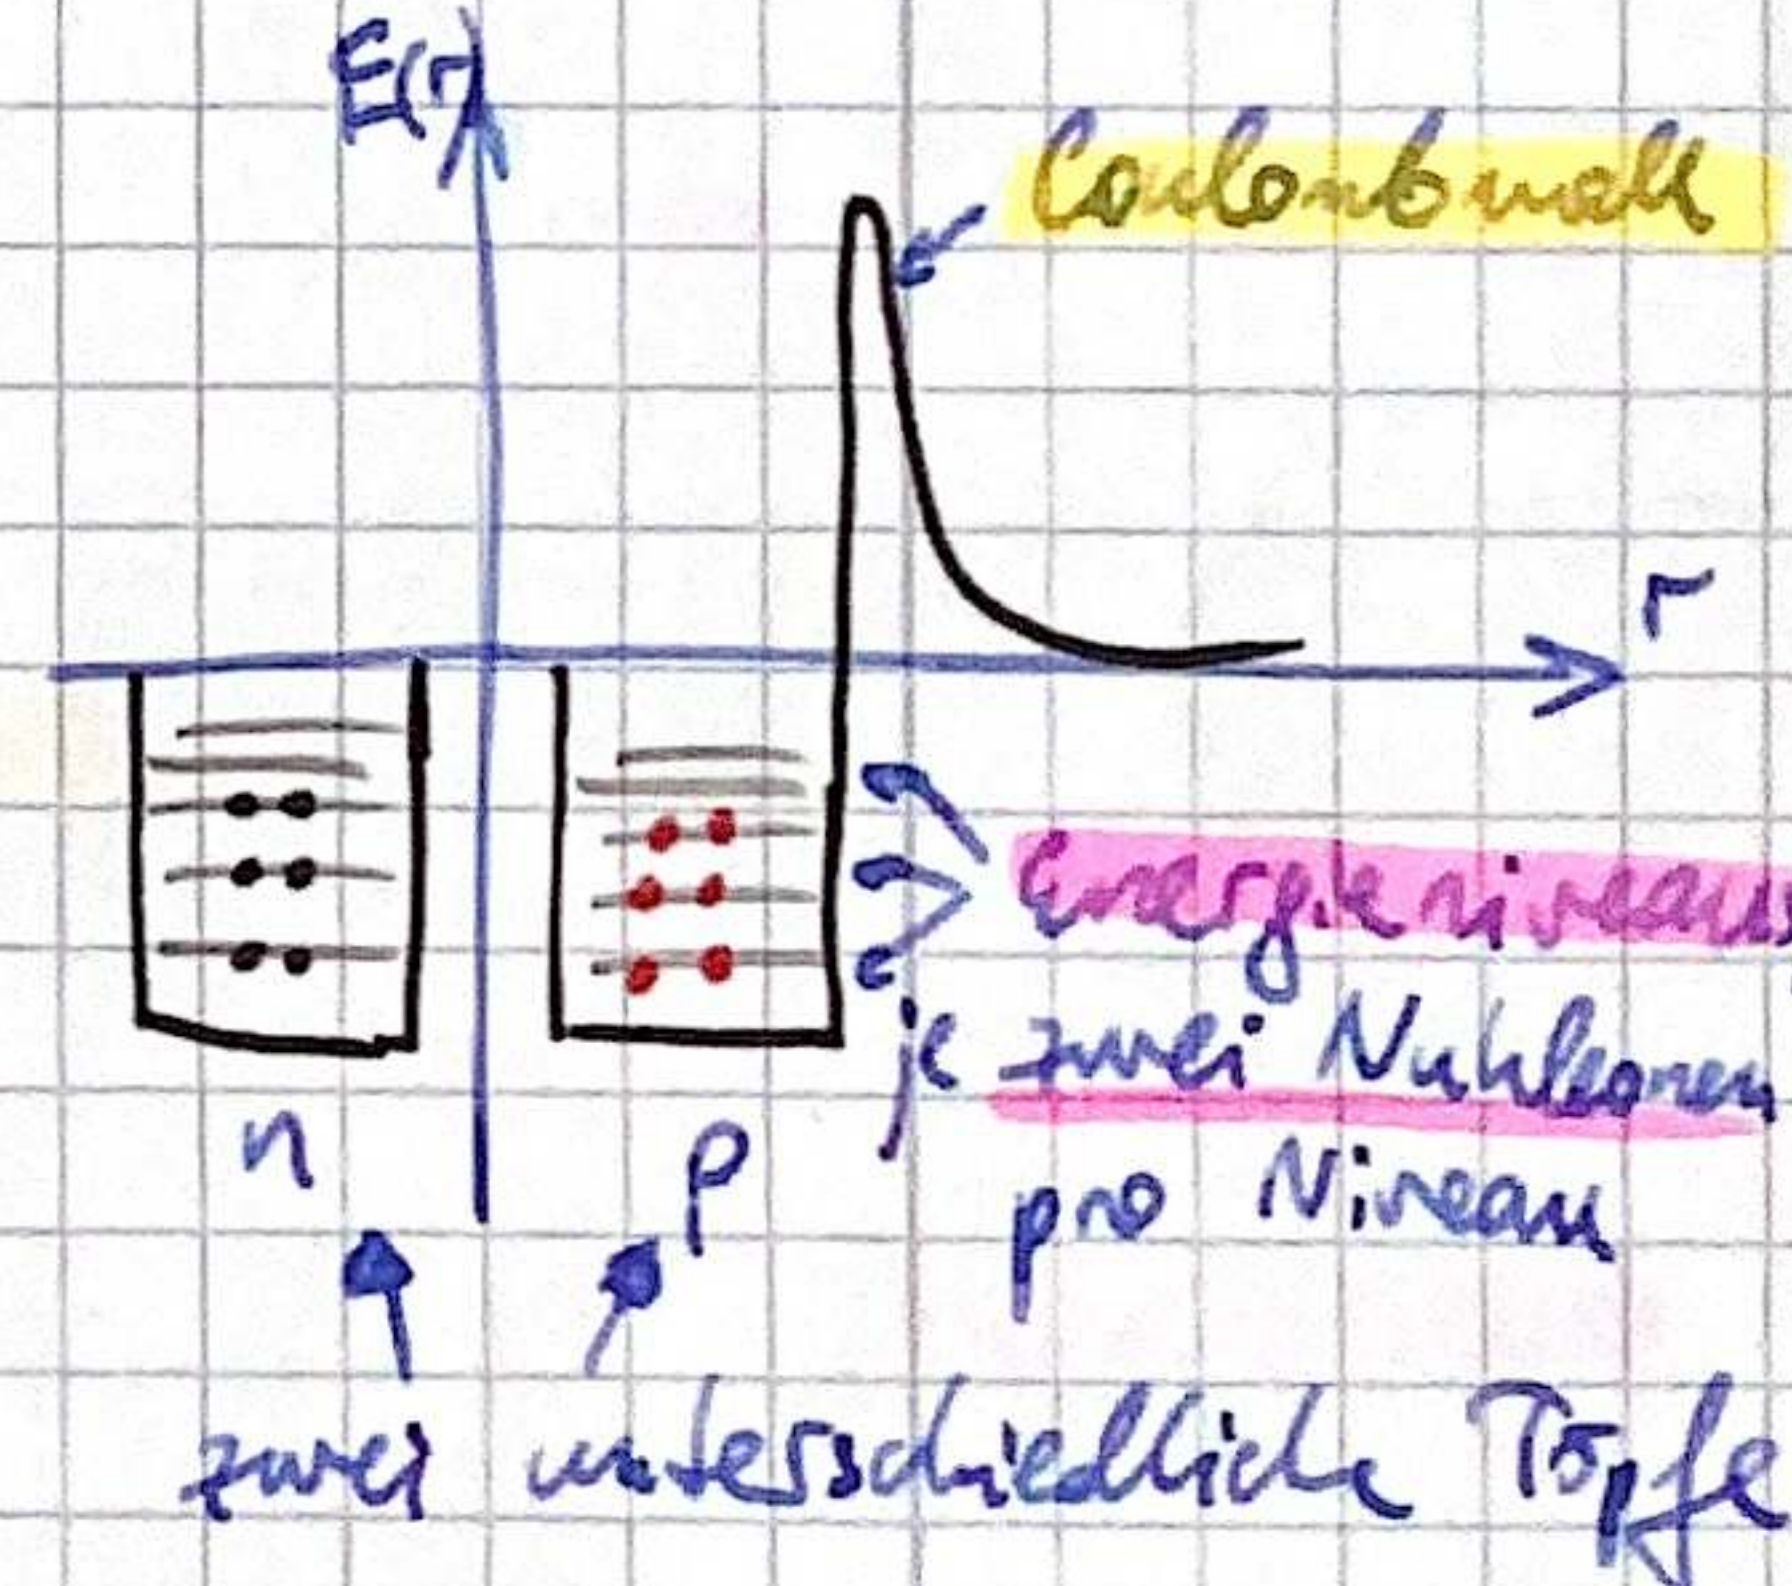 E(r)
Coulombwall
r
Energieniveaus
je zwei Nukleonen
n
p
pro Niveau
zwei unterschiedliche Töpfe